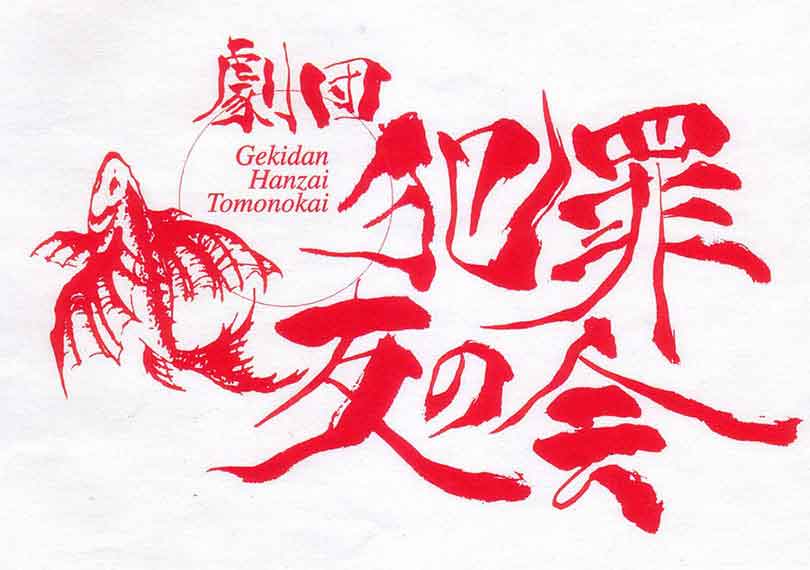 劇団
Gekidan
Hanzai
Tomonokai
犯罪
友の会